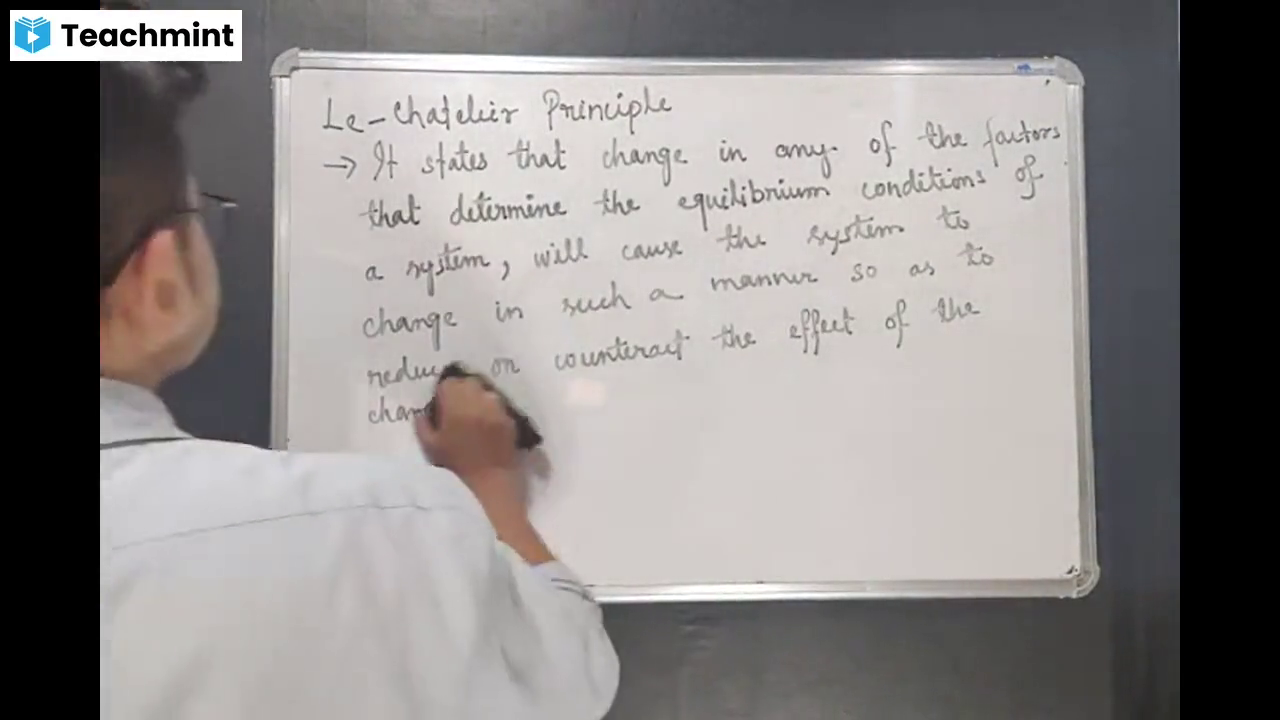 Teachmint
Le-Chatelier Principle
→ It states that change in any of the factors
that determine the equilibrium conditions of
a system, will cause the system to
change in such a manner so as to
reduce or counteract the effect of the